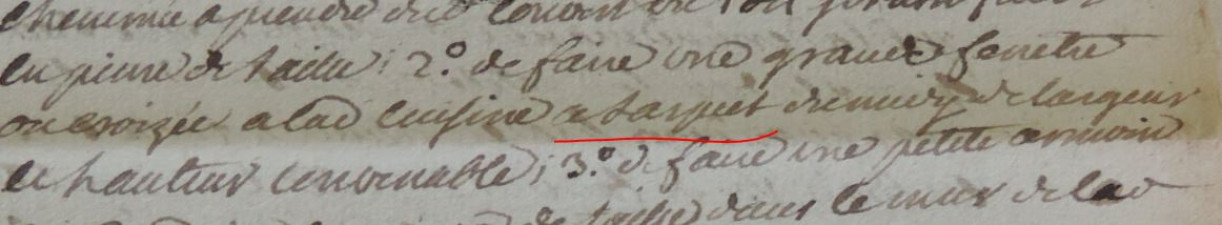 cheminée a prendre du
en pierre de taille; 2.° de faire une grande fenetre
ou croizée a lad cuisine a laspet du midy de largeur
et hauteur convenable; 3.° de faire une petite armoire
de taille dans le mur de lad